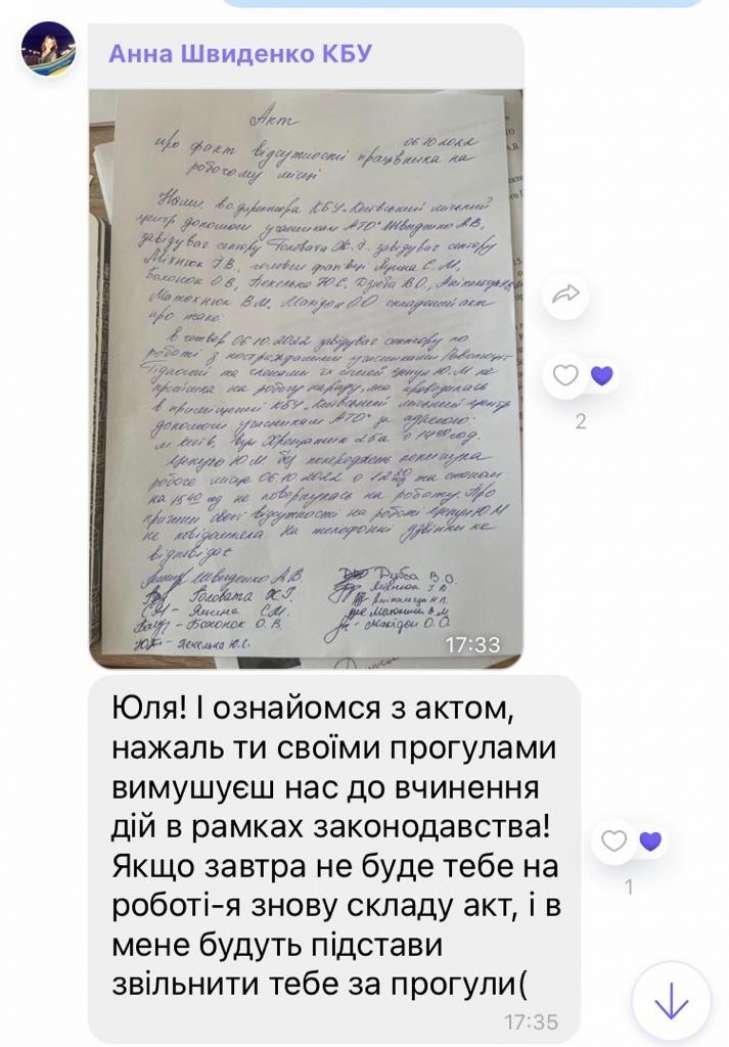 Анна Швиденко КБУ
Акт
06.10.2022
про факт відсутності працівника на
робочому місці
Нами, во директора КБУ "Київський міський
центр допомоги учасникам АТО" Швиденко А.В,
завідувач сектору Головата Ж.Г. завідувач сектору
Міхнюк Г.В, головні фахівці Яшина С.М,
Бохонок О.В, Пекелько Ю.С, Дзюба В.О,
Матюхнюк В.М, О.О складений акт
про таке:
в четвер 06.10.2022 завідувач сектору по
роботі з постраждалими учасниками Революції
Гідності та членами їх сімей Ю.М не
прийшла на робочу нараду, яка проводилась
в приміщенні КБУ "Київський міський центр
допомоги учасникам АТО" за адресою:
м Київ, вул Хрещатик 26а о 14:00 год.
Ю.М без попереджень покинула
робоче місце 06.10.2022 о 12 та станом
на 15 40 год не повернулась на роботу. Про
причини своєї відсутності на роботі Ю.М
не повідомила. На телефонні дзвінки не
відповідає
Швиденко А.В.
Головата Ж.Г.
Яшина С.М.
- Бохонок О.В
- Пекелько Ю.С.
Дзюба В.О.
Міхнюк Г.В
В.М
О.О
17:33
2
Юля! І ознайомся з актом,
нажаль ти своїми прогулами
вимушуєш нас до вчинення
дій в рамках законодавства!
Якщо завтра не буде тебе на
роботі-я знову складу акт, і в
мене будуть підстави
звільнити тебе за прогули(
17:35
1